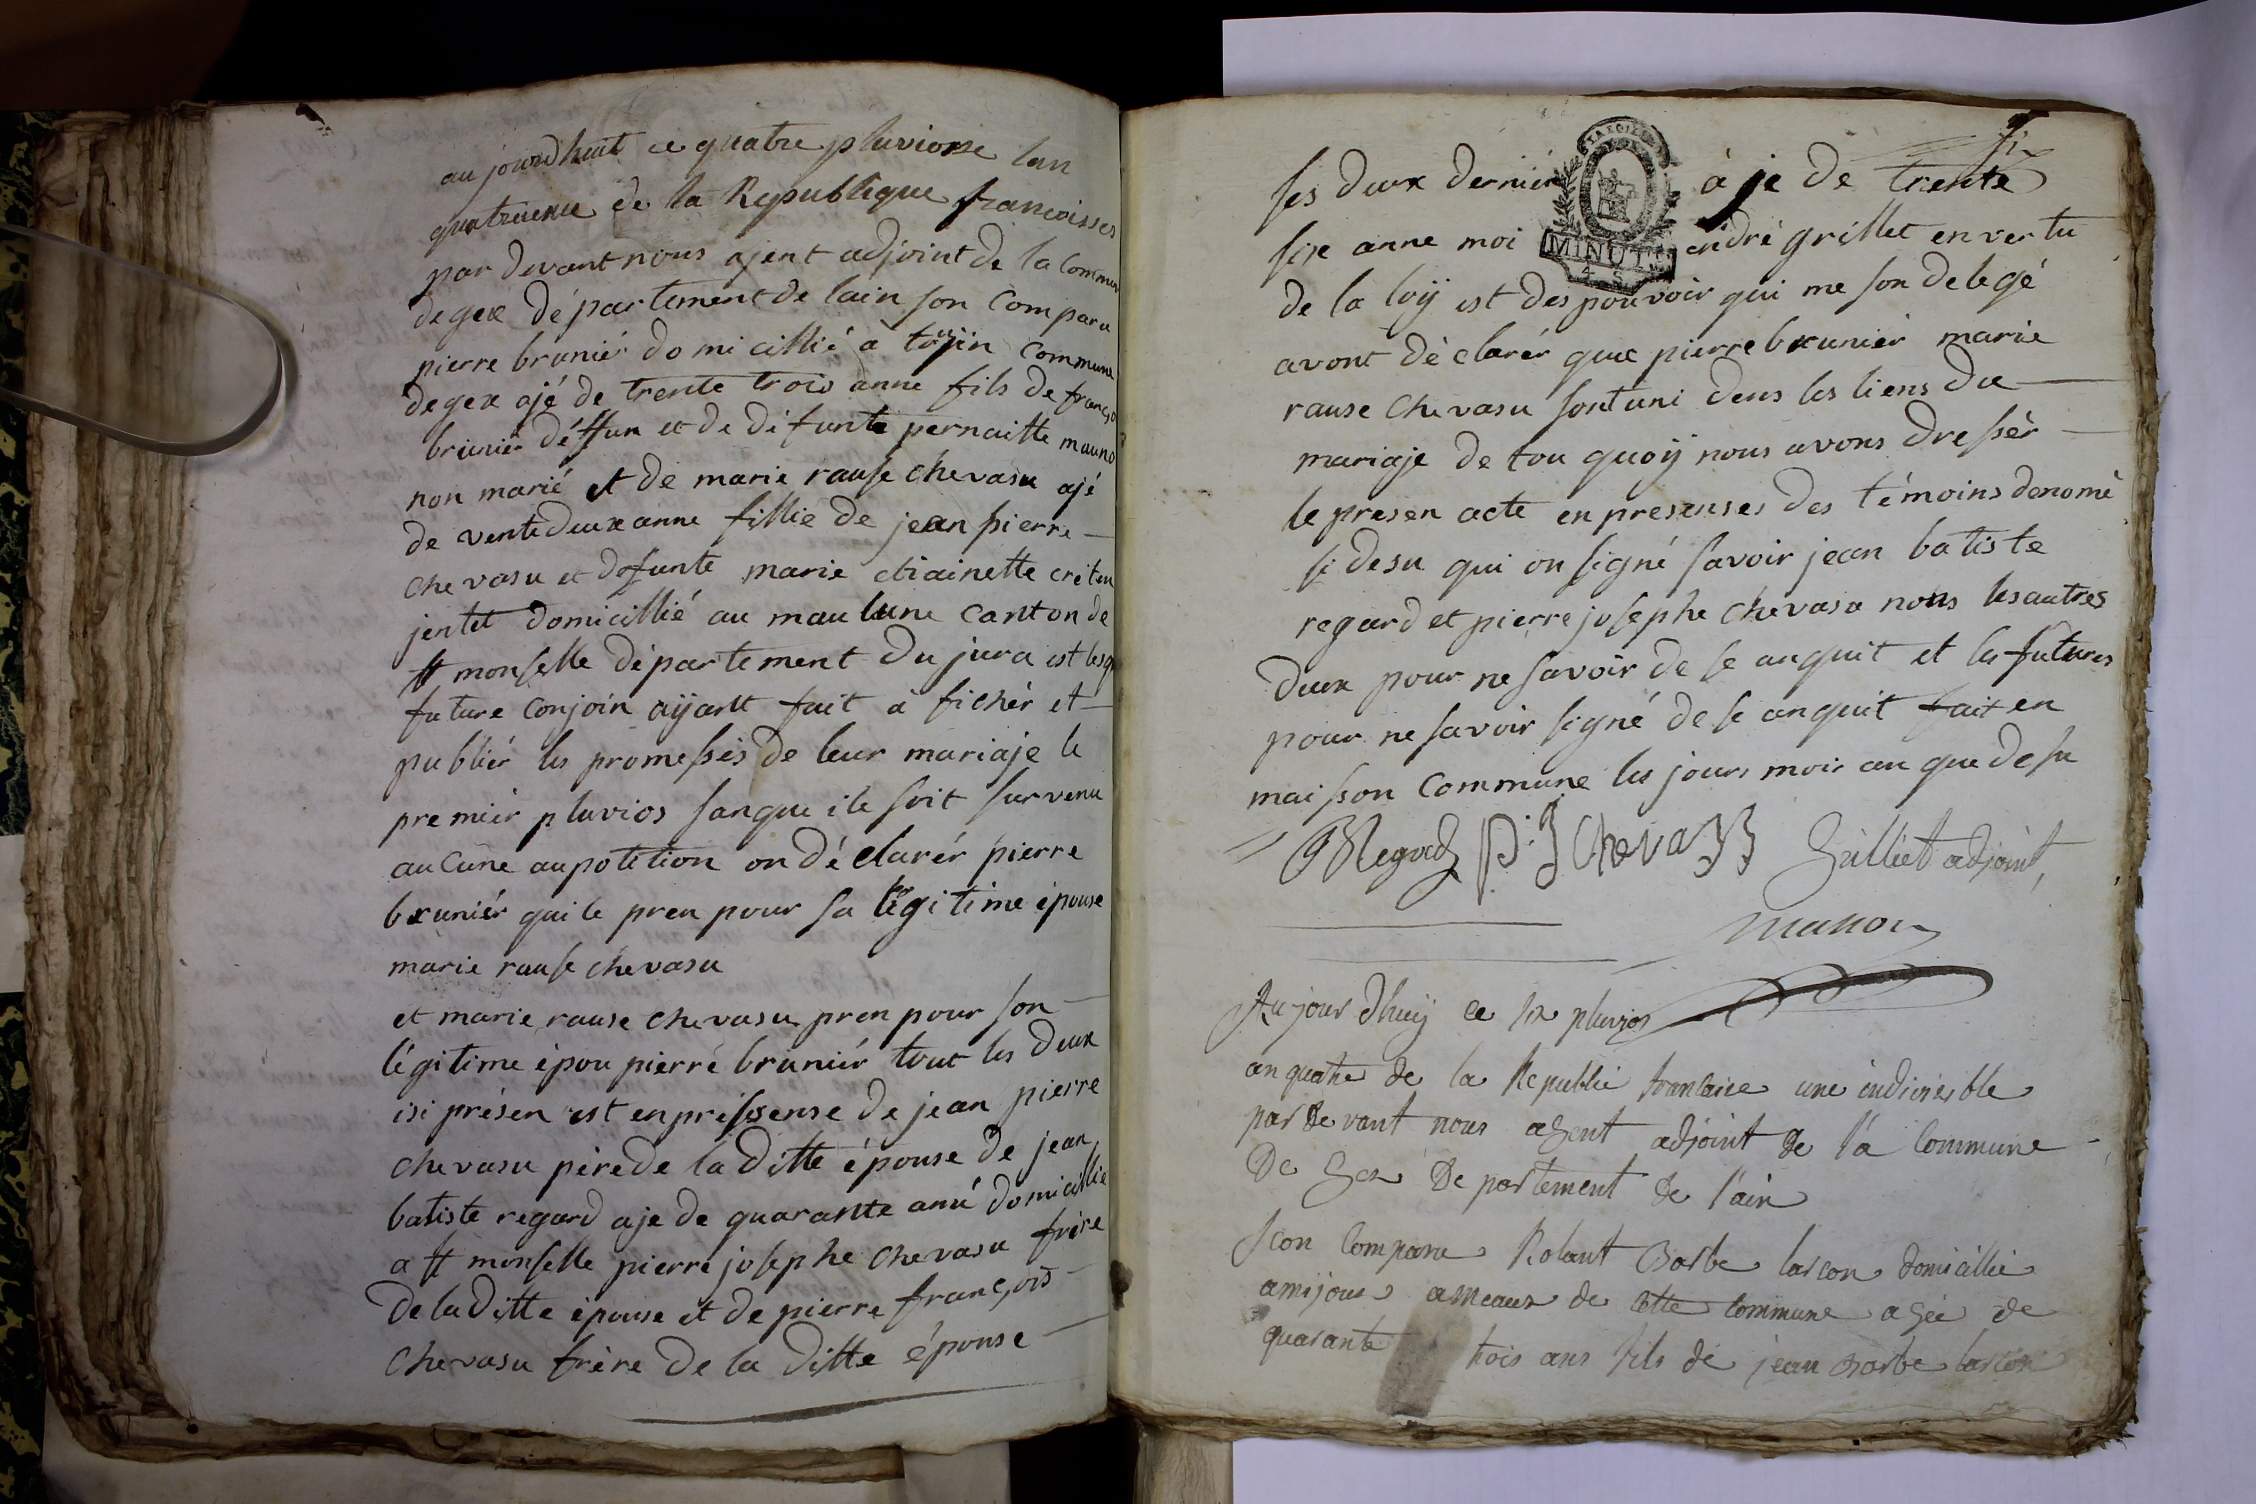 aujourdhuit ce quatre pluviosse lan
quatrieme de la Republique francoisses
par devant nous ajent adjoint de la Commun
degex département de lain son Comparu
pierre bruniér domicillié a toujin Commune
degex ajé de trente trois anne fils de franço
bruniér déffun et de défunte pernaitte
non marié et de marie rause chevasu ajé
de vente deux anne fillie de jean pierre
chevasu et defunte marie
jentet domicillié au maulune canton de
st monselle département du jura est lesq
future conjoin aijant fait a fichér et
publiér les promesses de leur mariaje le
premiér pluvios sanque ile soit survenu
aucune aupotition on déclarér pierre
bruniér quile pren pour sa légitime épouse
marie rause chevasu
et marie rause chevasu pren pour son
légitime épou pierre bruniér tout les deux
isi présen est enpréssense de jean pierre
chevasu pére de la ditte épouse de jean
batiste regard aje de quarante anné domicillié
a st monselle pierre josephe chevasu frére
de la ditte épouse et de pierre françois
chevasu frére de la ditte épouse
ses deux derniér aje de trente
sixe anne moi endré grillet en vertu
MINUT.
de la loij est des pouvoir qui me son delegé
avont déclarér que pierre bruniér marie
rause chevasu sont uni dens les liens du
mariaje de tou quoij nous avons dressér
le presen acte en presenses des témoins denomé
si desu qui on signé savoir jean batiste
regard et pierre josephe chevasu nons les autres
deux pour ne savoir de se anquit et les futures
pour ne savoir signé de se anquit fait en
maisson Commune les jours mois an que desu
Regard p. J Chevass Grilliet adjoint
Aujourdhuij ce six pluvios
an quatre de la Republie francaise une indivisible
par devant nous agent adjoint de la Commune
De Gex Departement de l'ain
Son Comparu Rolant Barbe larcon domicillié
amijoux ameaux de Cette Commune agée de
quarante trois ans fils de jean Barbe larcon